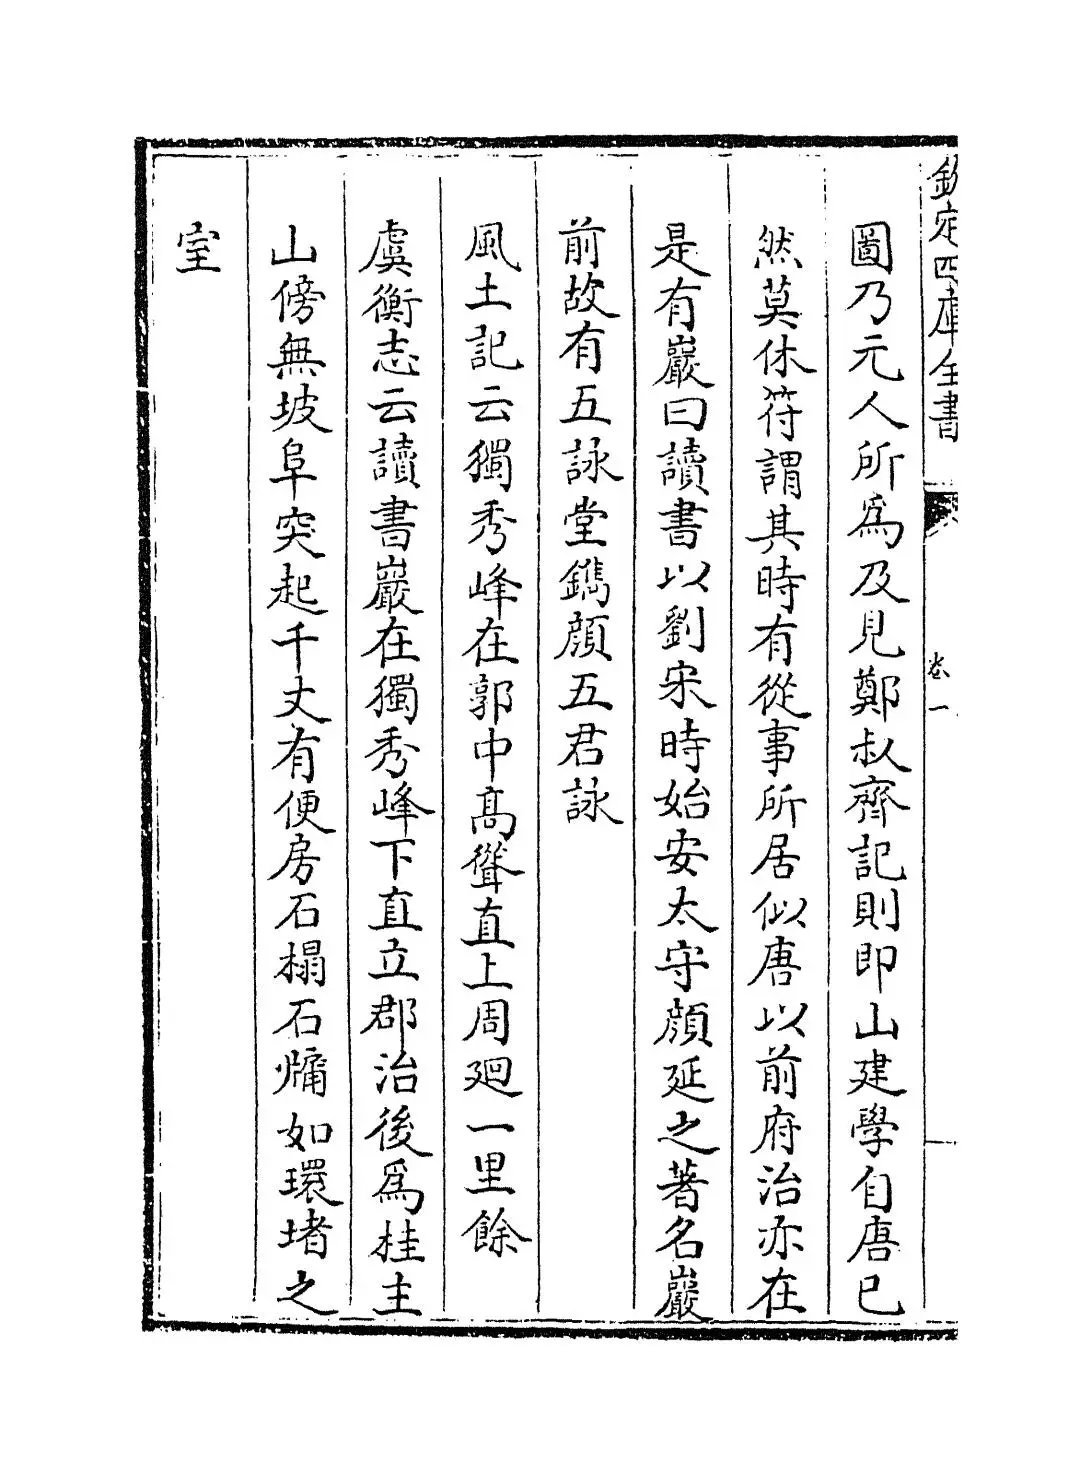 欽定四庫全書
卷一
圖乃元人所為及見鄭叔齊記則即山建學自唐已
然莫休符謂其時有從事所居似唐以前府治亦在
是有巖曰讀書以劉宋時始安太守顔延之著名巖
前故有五詠堂鐫顔五君詠
風土記云獨秀峰在郭中髙聳直上周廻一里餘
虞衡志云讀書巖在獨秀峰下直立郡治後為桂主
山傍無坡阜突起千丈有便房石榻石牖如環堵之
室